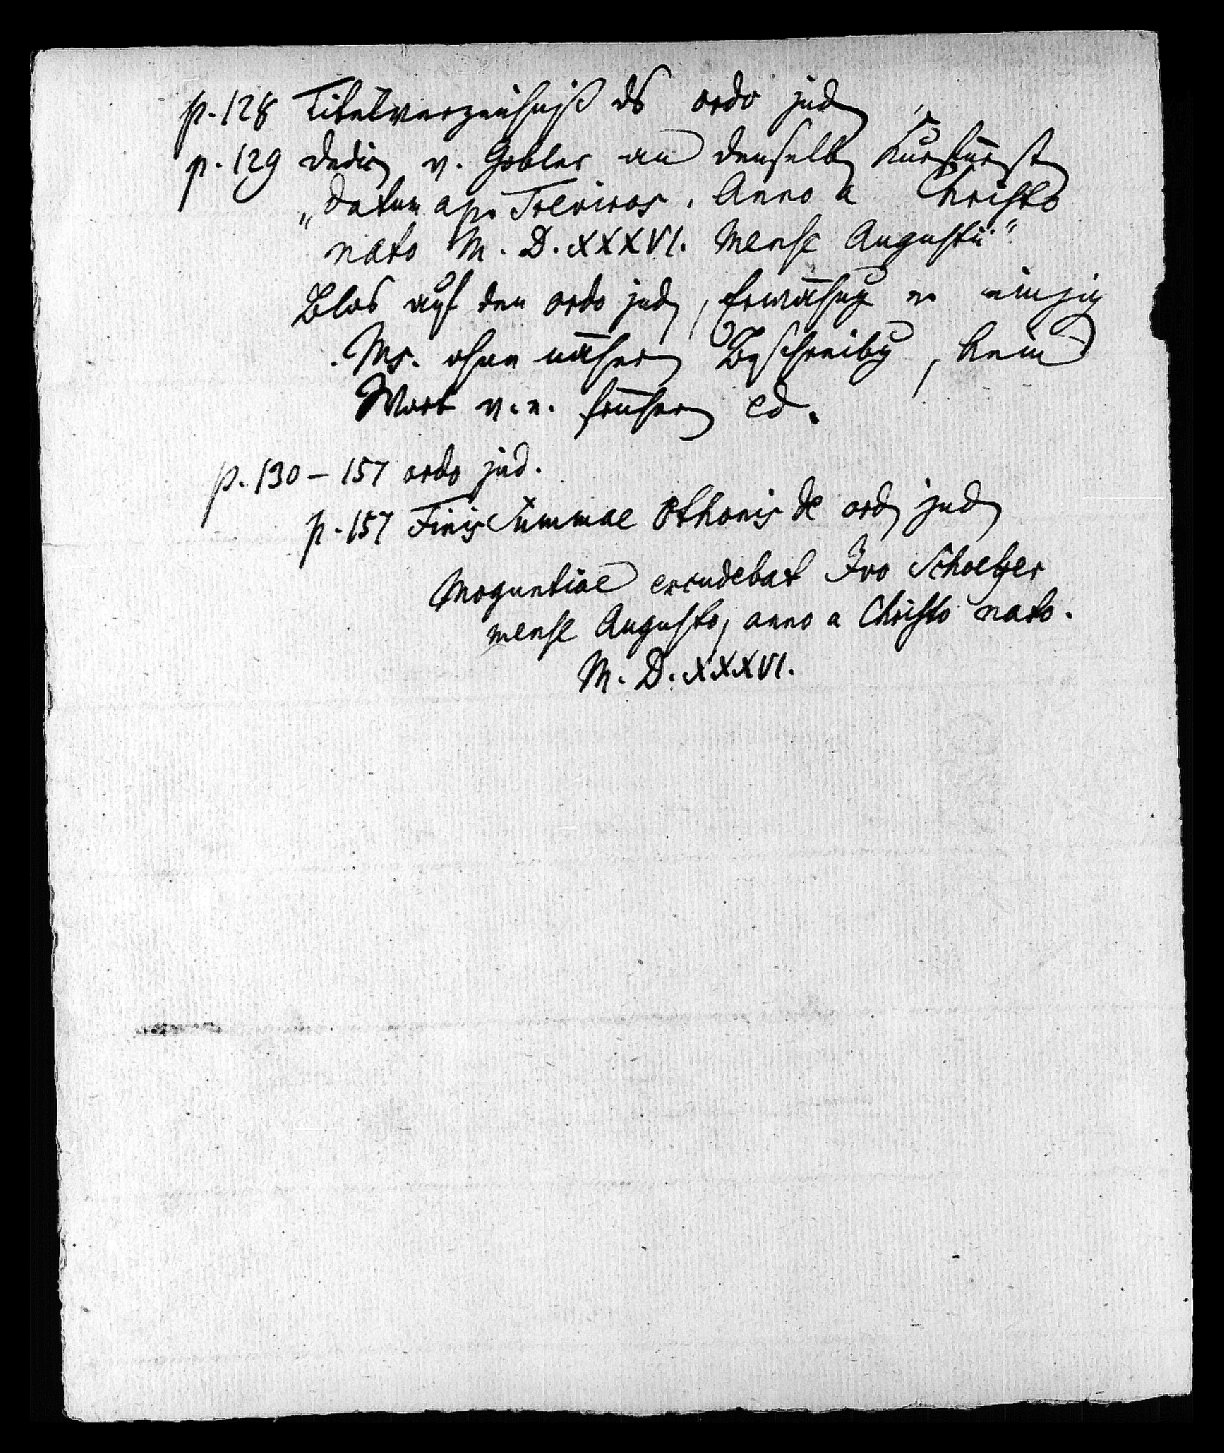 p. 128 Titelverzeichniß ds ordo jud
p. 129 Dedic v. Gobler an denselb Kurfürst
„Datum ap. Treviros. Anno a Christo
nato M. D. XXXVI. Mense Augusti“
Blos auf den ordo jud, Erwähng er einzig
Ms. ohne näher Beschreibg, kein
Wort v. e. früher ed.
p. 130 – 157 ordo jud.
p. 157 Finis Summae Othonis de ord jud
Moguntiae excudebat Ivo Schoeffer
mense Augusto, anno a Christo nato.
M. D. XXXVI.